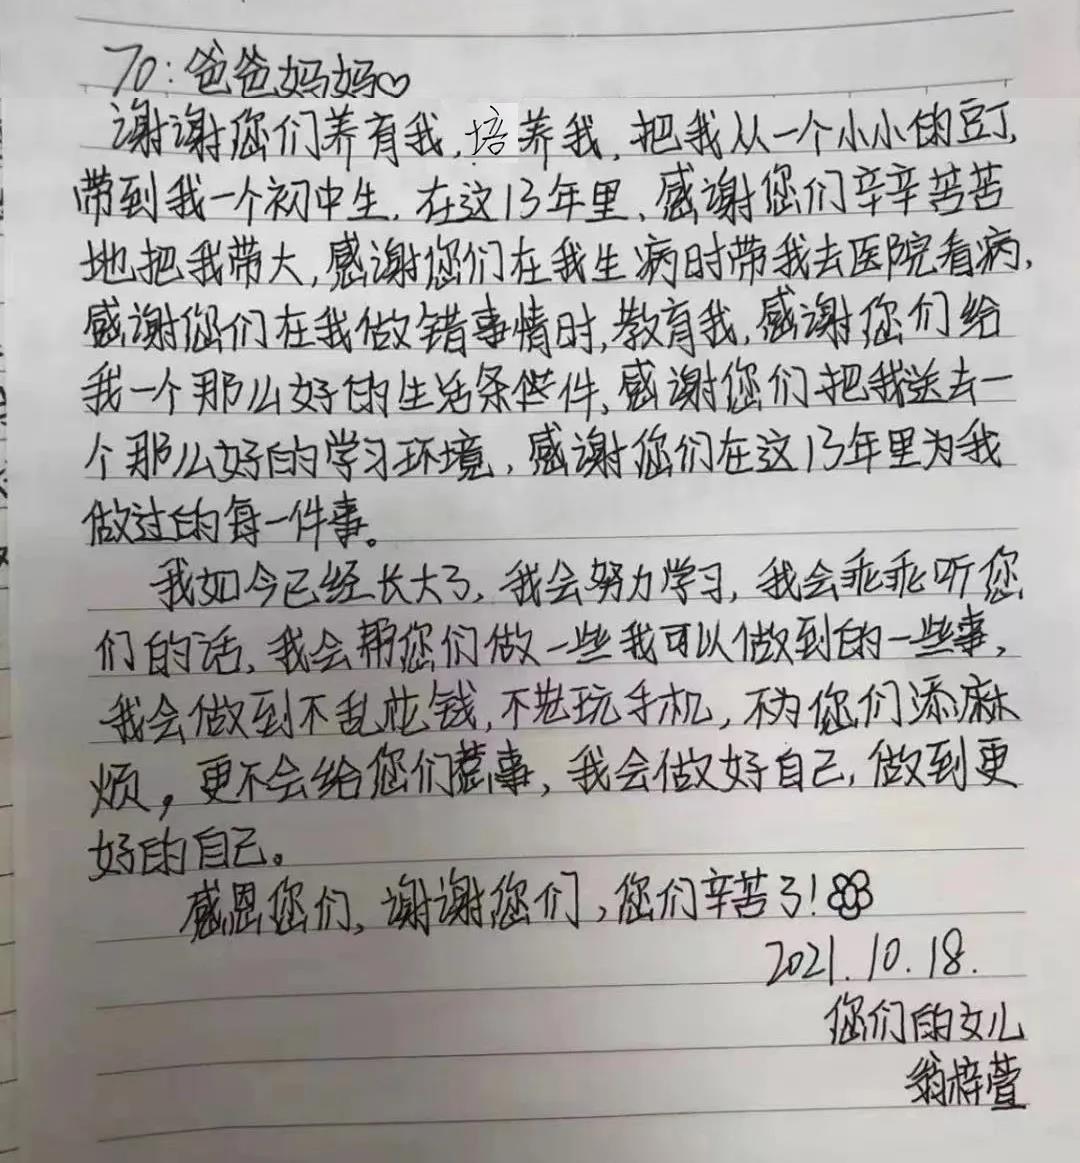 To:爸爸妈妈♡
谢谢您们养育我,培养我,把我从一个小小的豆丁,
带到我一个初中生,在这13年里,感谢您们辛辛苦苦
地把我带大,感谢您们在我生病时带我去医院看病,
感谢您们在我做错事情时,教育我,感谢您们给
我一个那么好的生活条件,感谢您们把我送去一
个那么好的学习环境,感谢您们在这13年里为我
做过的每一件事。
我如今已经长大了,我会努力学习,我会乖乖听您
们的话,我会帮您们做一些我可以做到的一些事,
我会做到不乱花钱,不老玩手机,不为您们添麻
烦,更不会给您们惹事,我会做好自己,做到更
好的自己。
感恩您们,谢谢您们,您们辛苦了!
2021.10.18.
您们的女儿
翁梓萱